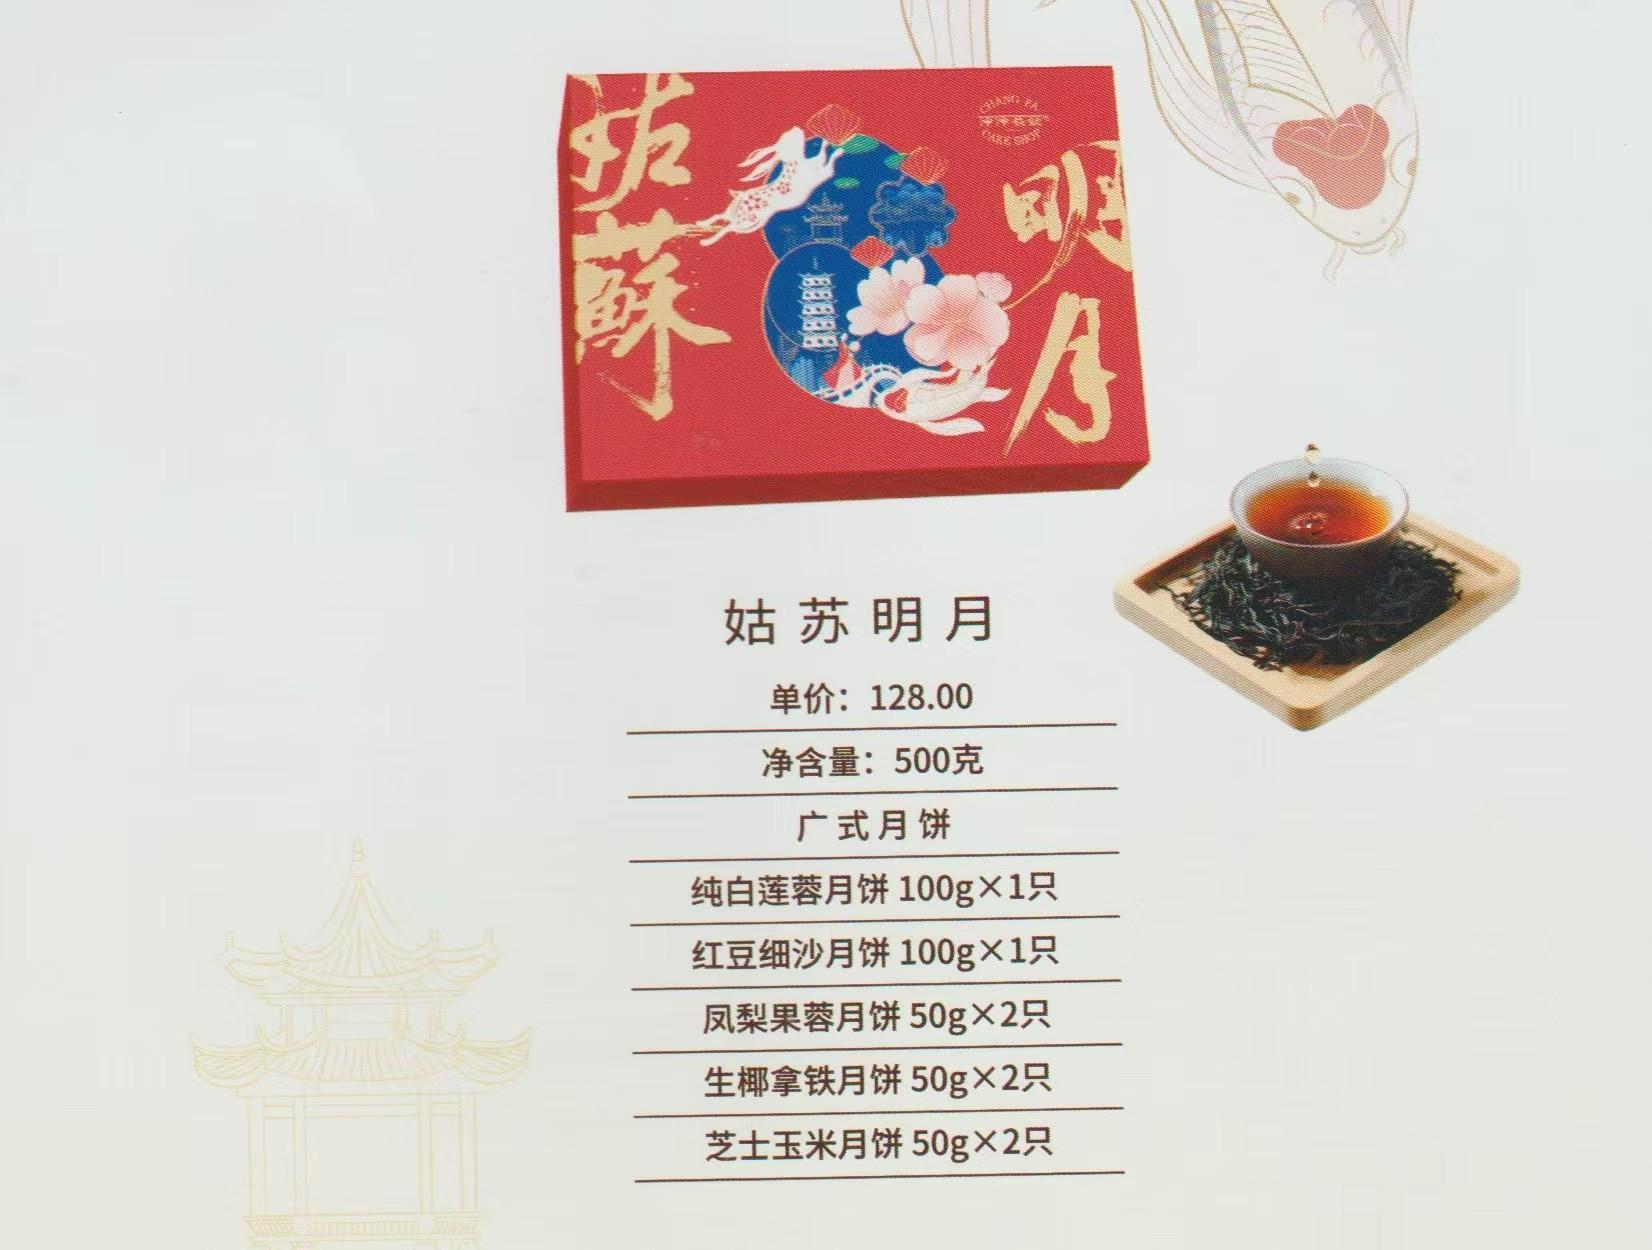 姑蘇
明月
CHANG FA
CAKE SHOP
姑苏明月
单价：128.00
净含量：500克
广式月饼
纯白莲蓉月饼 100g×1只
红豆细沙月饼 100g×1只
凤梨果蓉月饼 50g×2只
生椰拿铁月饼 50g×2只
芝士玉米月饼 50g×2只